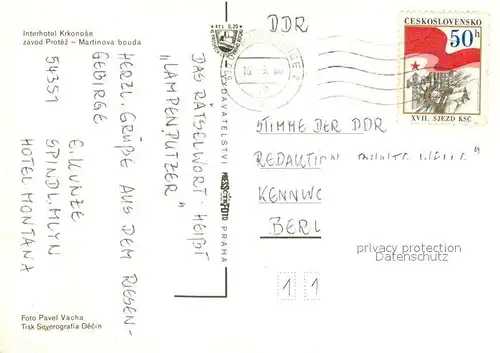 Interhotel Krkonoše
závod Protěž – Martinova bouda
DAS RÄTSELWORT HEIßT
„LAMPENPUTZER"
HERZL. GRÜßE AUS DEM RIESEN-
GEBIRGE
E. KUNZE
SPINDL. MLYN
HOTEL MONTANA
54351
Foto Pavel Vacha
Tisk Severografia Děčín
KčS 0,20
PRESSFOTO PRAHA
DDR
ČESKOSLOVENSKO
50h
XVII. SJEZD KSČ
STIMME DER DDR
REDAKTION
KENNWO
BERL
1 1
privacy protection
watermark